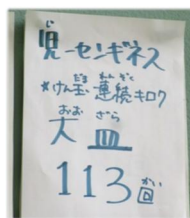 児ーセンギネス
*けん玉連続キロク
大皿
113回